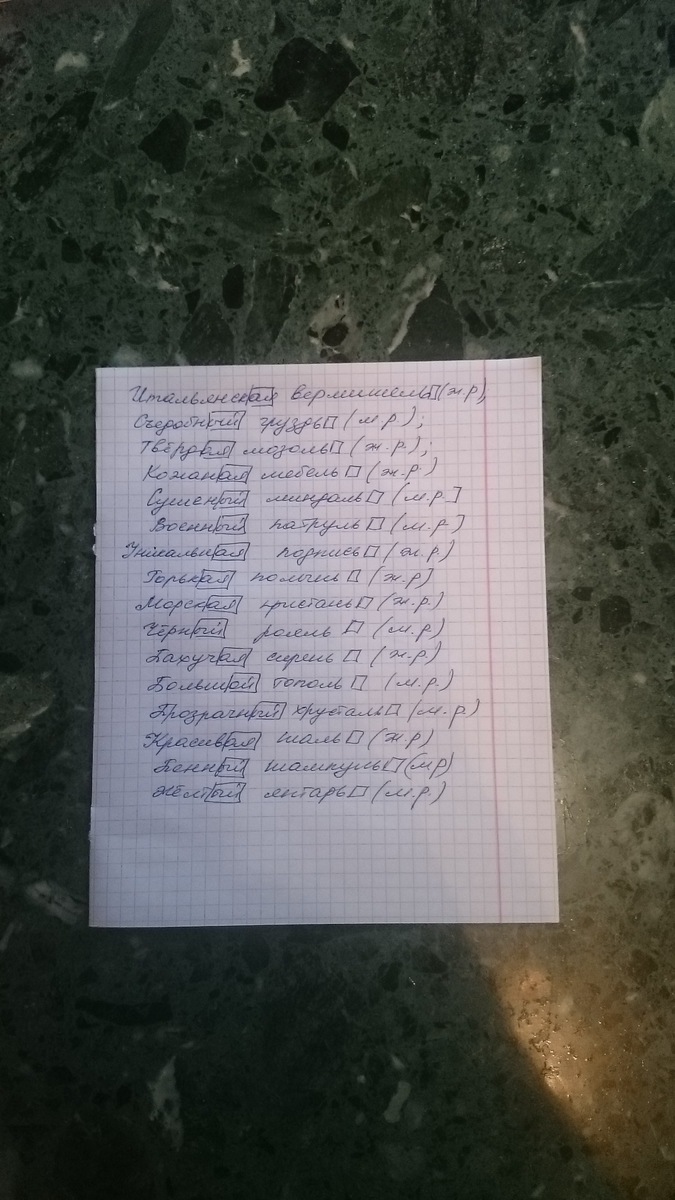 Итальянская вермишель□ (ж.р),
Съедобный груздь□ (м.р.);
Твёрдая мозоль□ (ж.р.);
Кожаная мебель□ (ж.р.)
Сушеный миндаль□ (м.р.]
Военный патруль□ (м.р.)
Унікальная подпись□ (ж.р.)
Горькая полынь□ (ж.р]
Морская пристань□ (ж.р.)
Чёрный рояль□ (м.р.)
Пахучая сирень□ (ж.р.)
Большой тополь□ (м.р.)
Прозрачный хрусталь□ (м.р.)
Красивая шаль□ (ж.р)
Банный шампунь□ (м.р)
Жёлтый янтарь□ (м.р.)